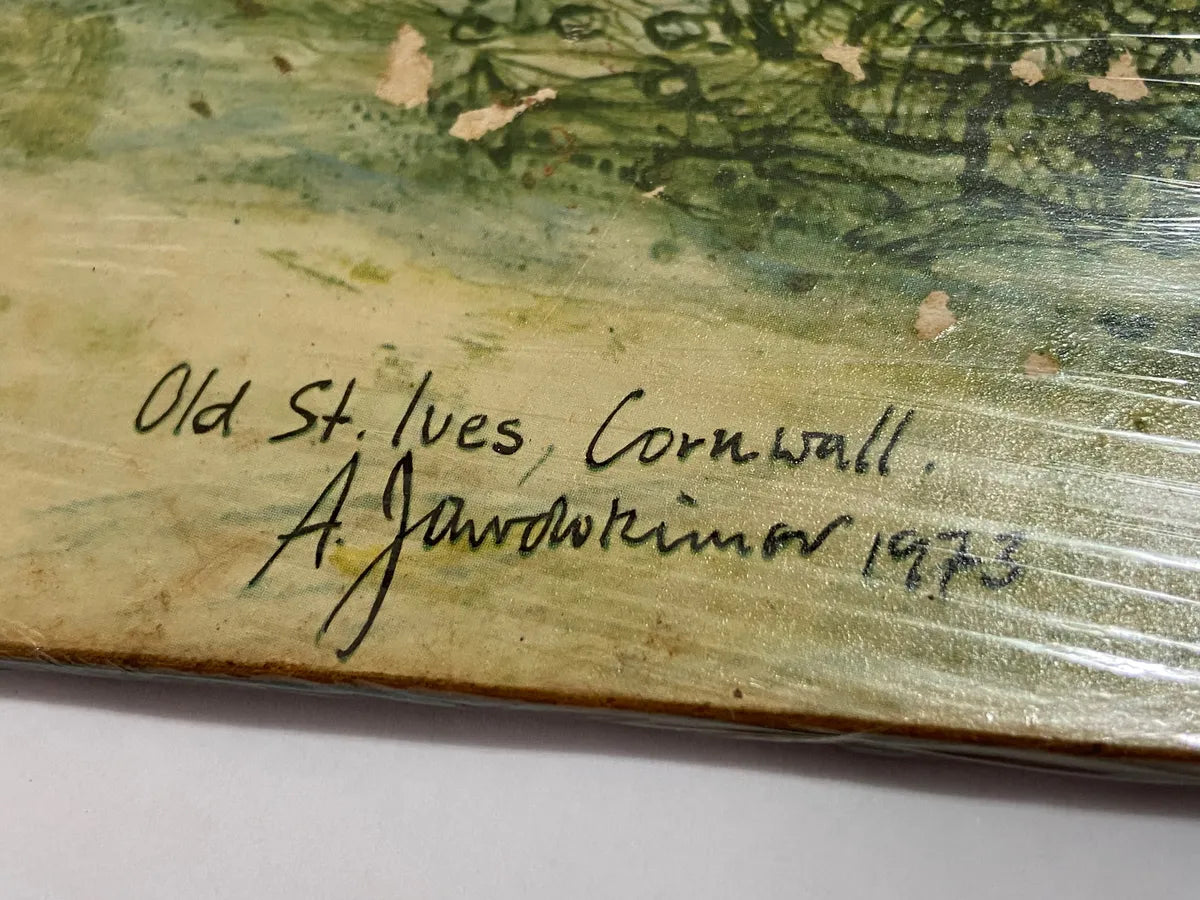 Old St. Ives, Cornwall.
A. Jawdokimov 1973